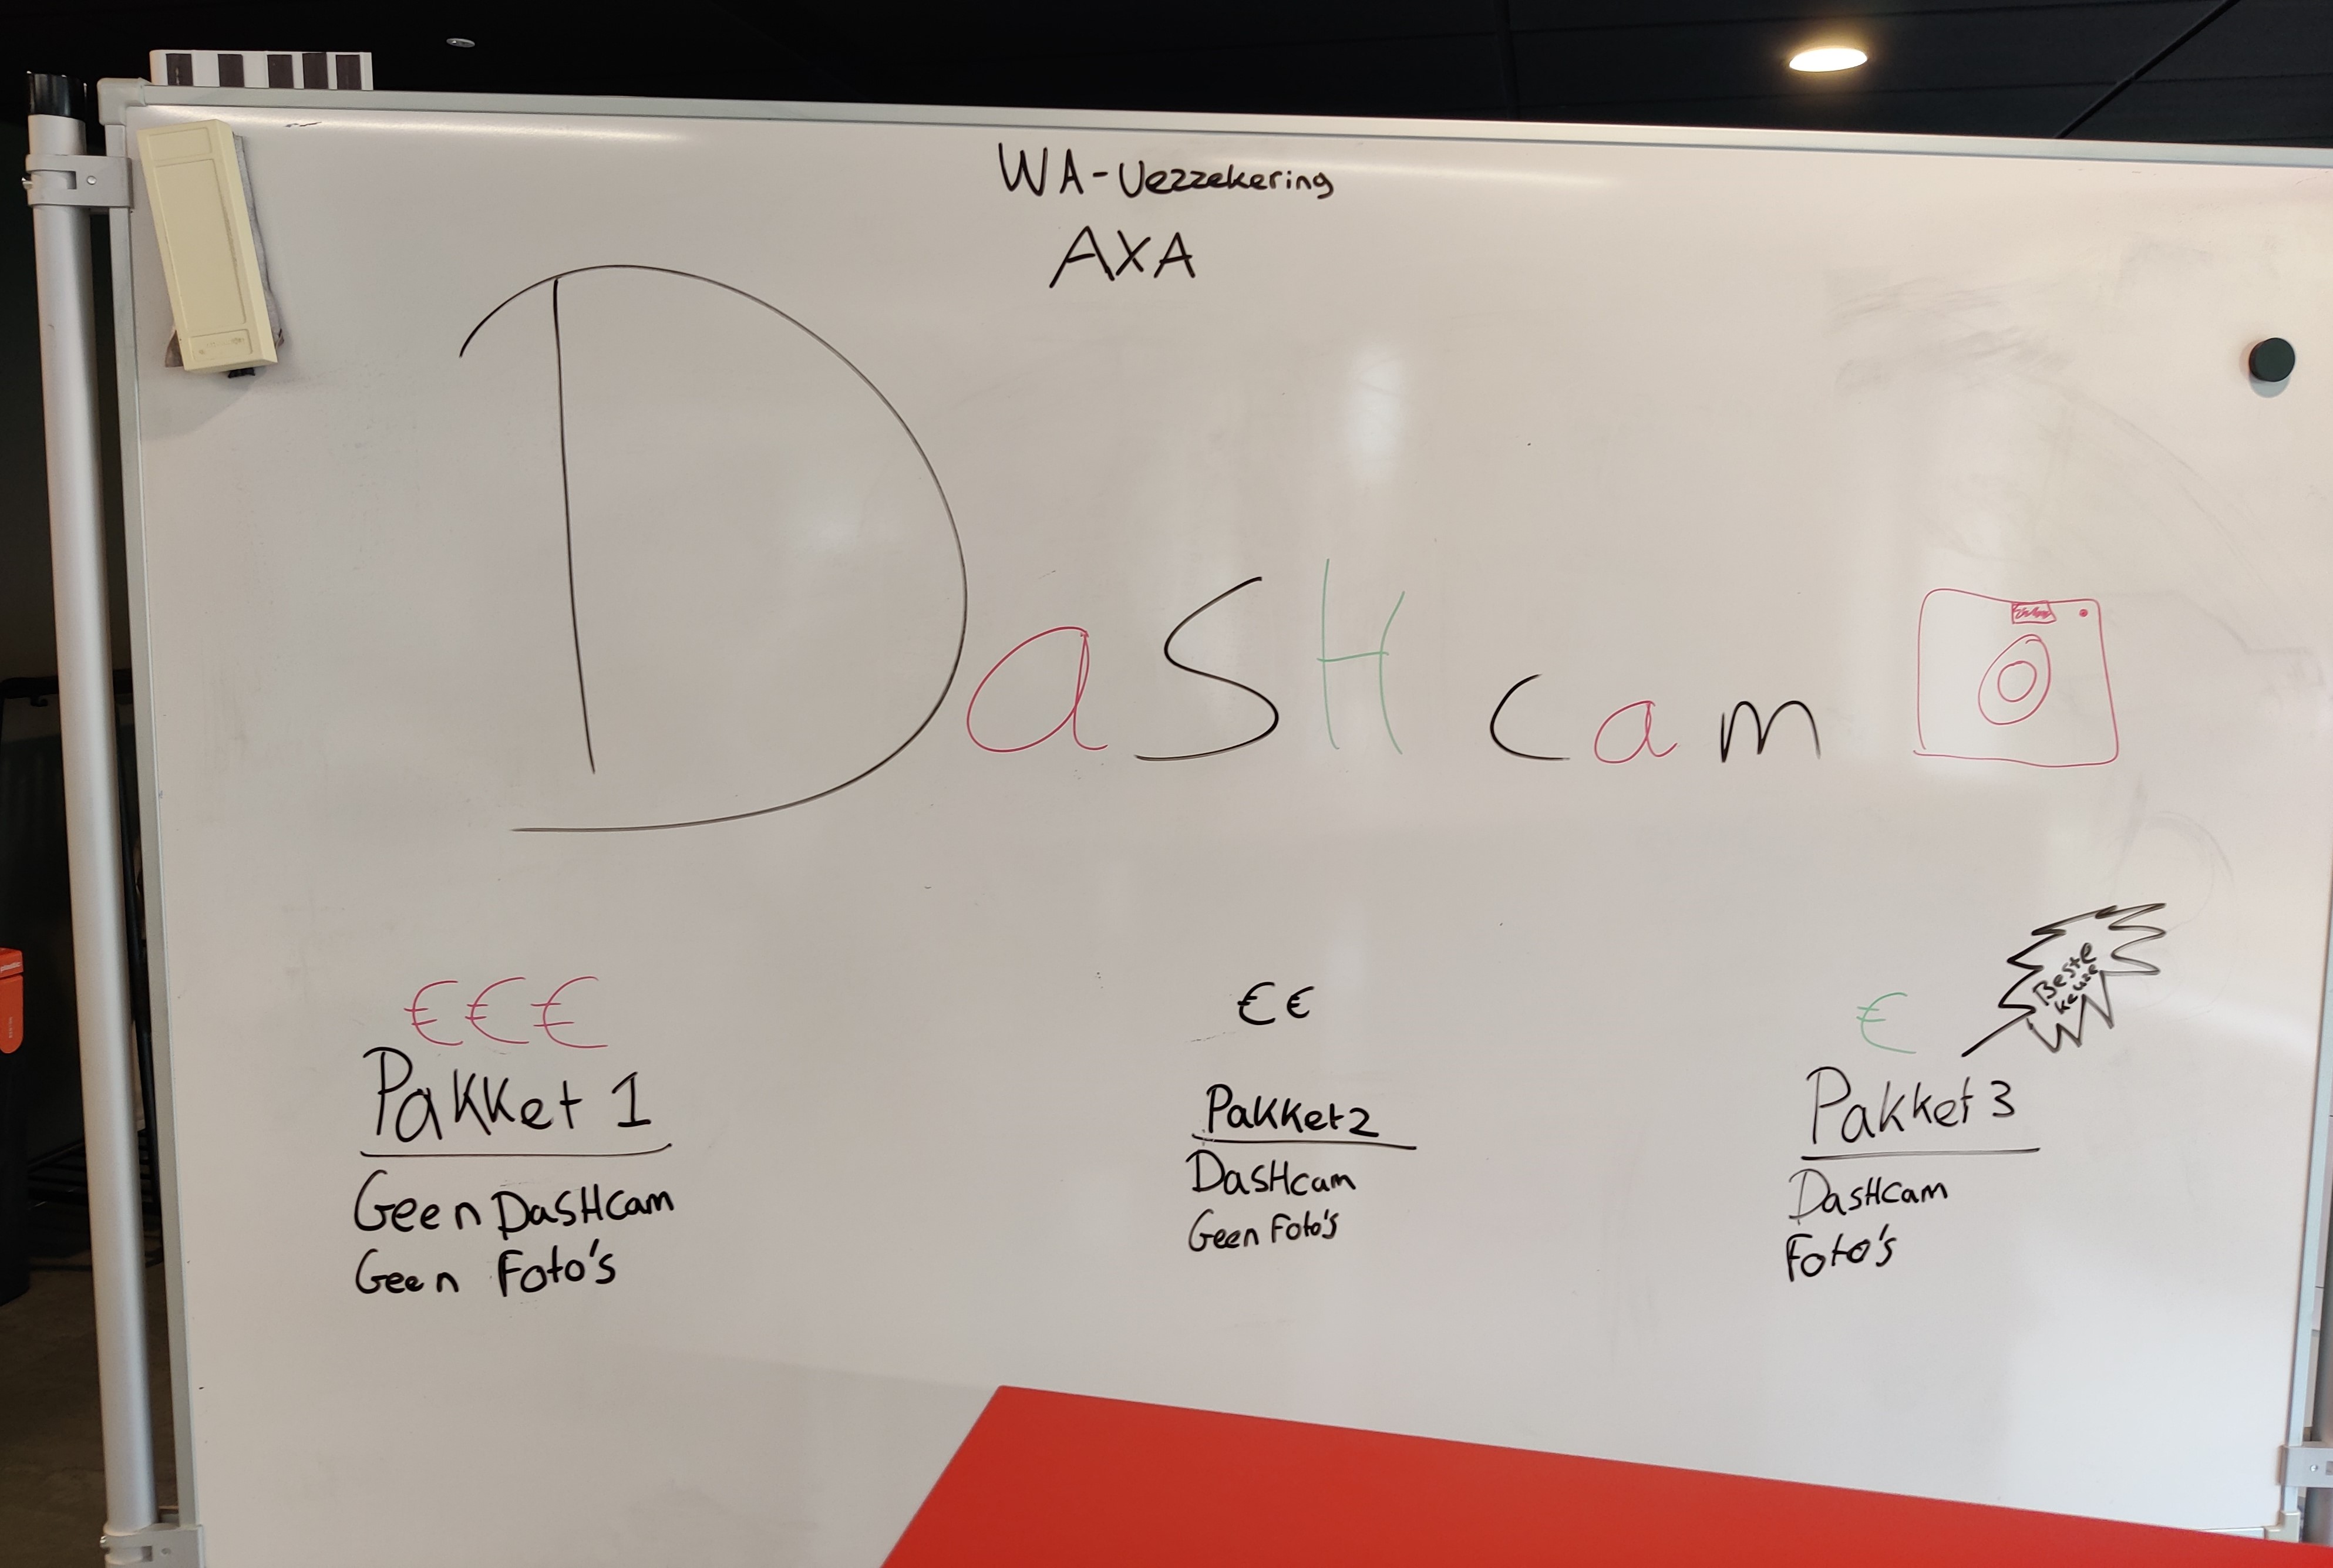 WA-Verzekering
AXA
DasH cam
€€€
Pakket 1
Geen DasHcam
Geen Foto's
€€
Pakket 2
DasHcam
Geen Foto's
€
Beste
keuze
Pakket 3
DasHcam
Foto's